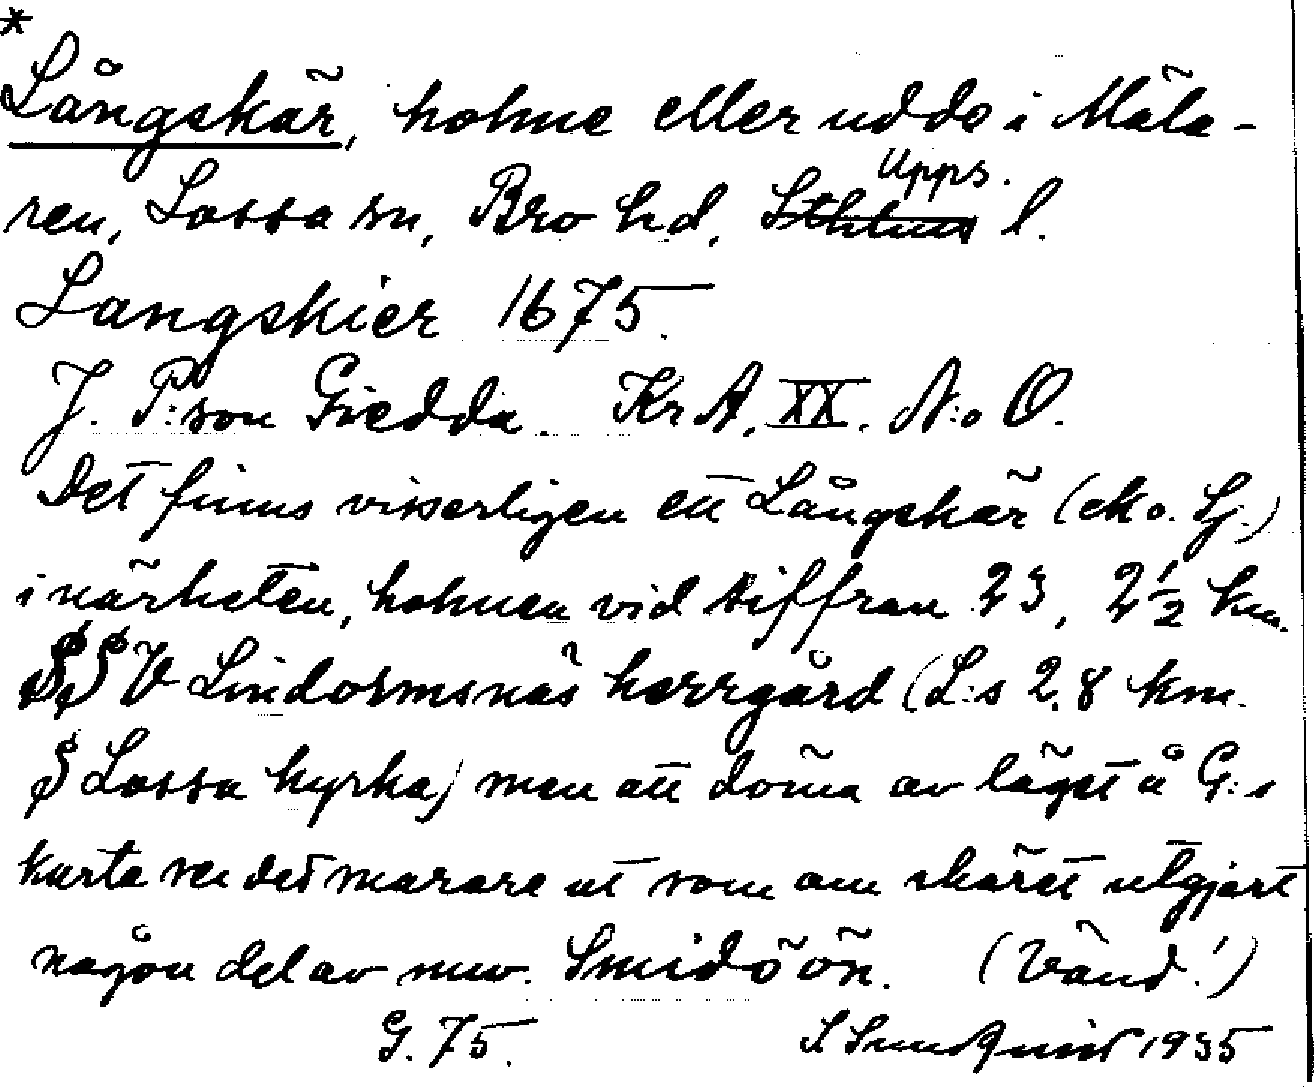 *
Långskär, holme eller udde i Mäla-
ren, Lossa sn, Bro hd, Sthlms Upps. l.
Langskier 1675.
J. P:son Giedda. KrA. XX. N:o O.
Det finns visserligen ett Långskär (ek o. Sj.)
i närheten, holmen vid siffran 23, 2½ km.
V Lindormsnäs herrgård (L:s 2,8 km.
Lossa kyrka) men att döma av läget å G:s
karta ser det snarare ut som om skäret utgjort
någon del av nuv. Smidöön. (Vänd!)
G. 75. S Sundquist 1935